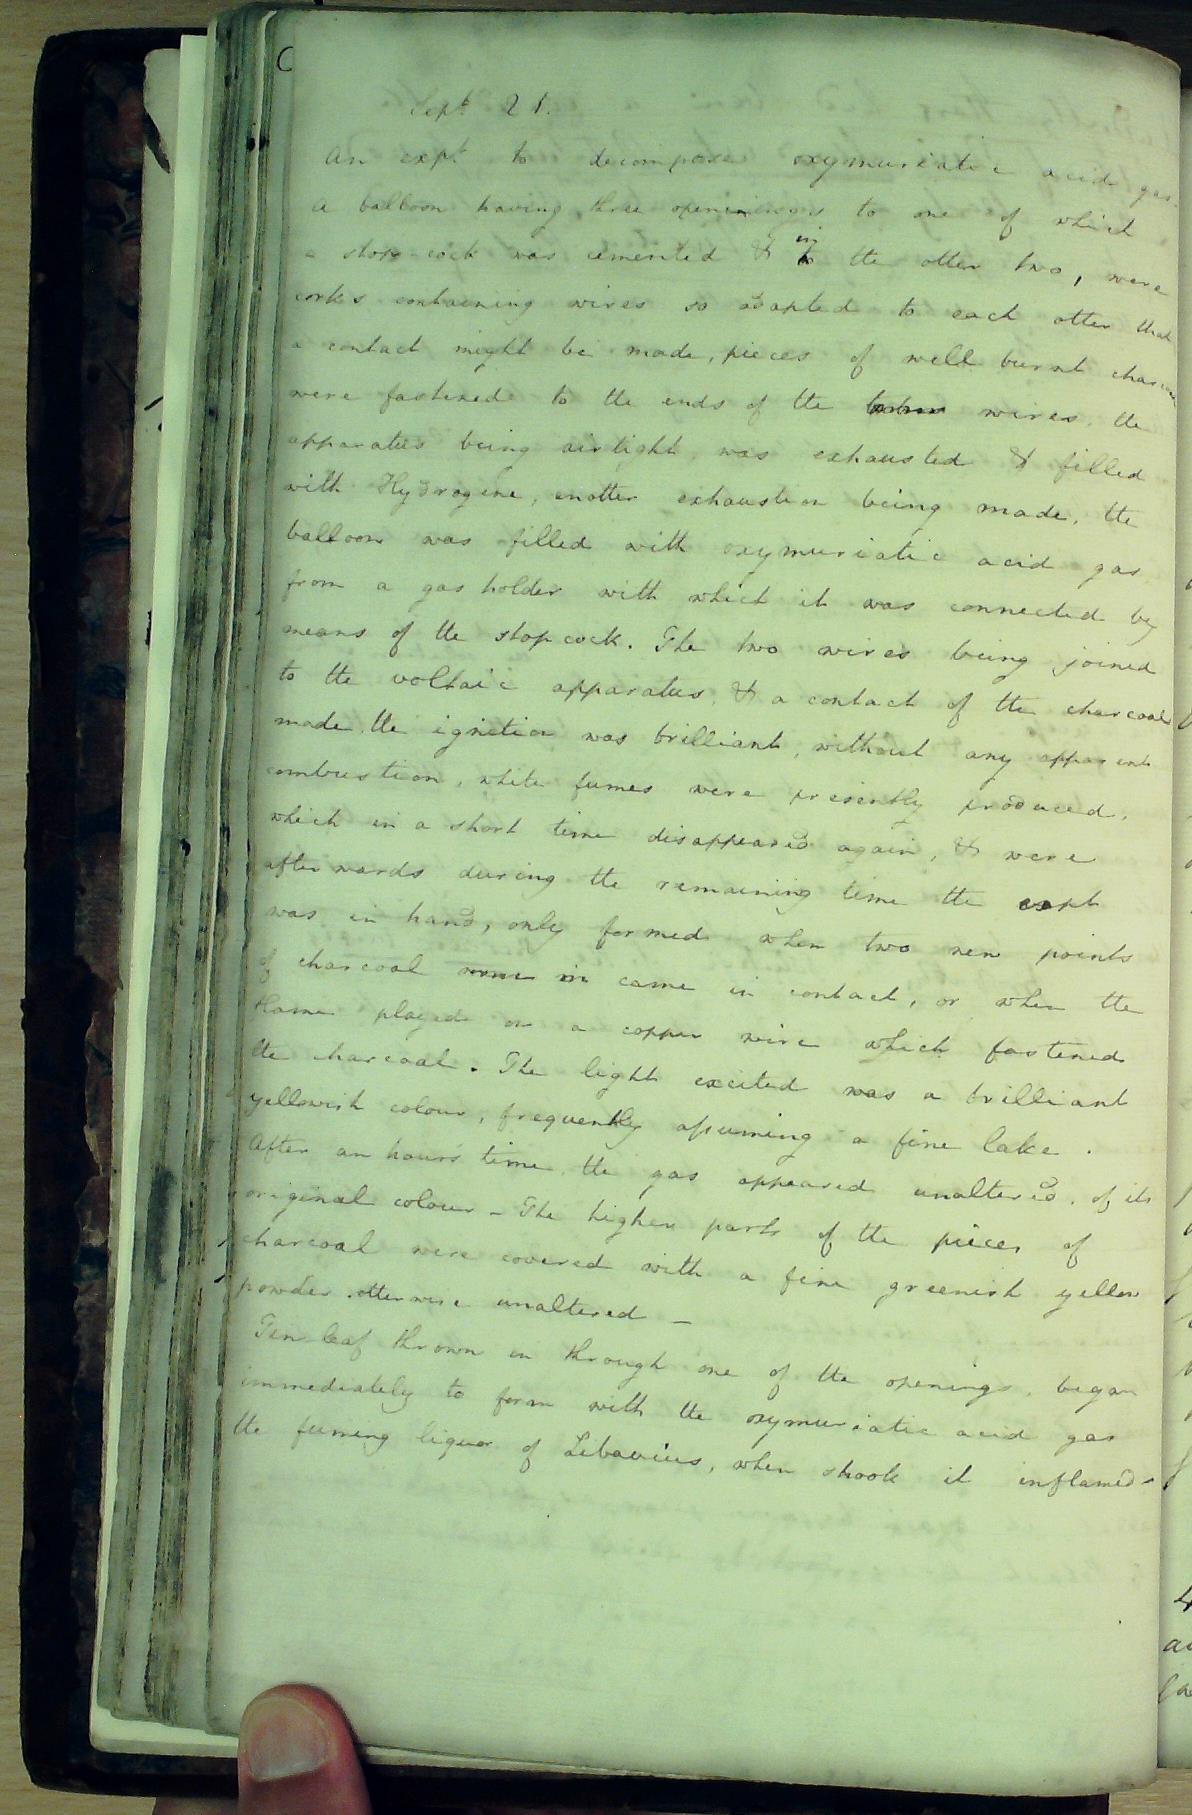 C
Sept. 21.
An expt. to decompose oxymuriatic acid gas.
A balloon having three openings to one of which
a stop-cock was cemented & in the other two, were
corks containing wires so adapted to each other that
a contact might be made, pieces of well burnt charcoal
were fastened to the ends of the wires. the
apparatus being airtight, was exhausted & filled
with Hydrogene, another exhaustion being made, the
balloon was filled with oxymuriatic acid gas
from a gas holder with which it was connected by
means of the stop cock. The two wires being joined
to the voltaic apparatus, & a contact of the charcoal
made, the ignition was brilliant, without any apparent
combustion, white fumes were presently produced,
which in a short time disappeared again, & were
afterwards during the remaining time the expt
was in hand, only formed when two new points
of charcoal came in contact, or when the
flame played on a copper wire which fastened
the charcoal. The light excited was a brilliant
yellowish colour, frequently assuming a fine lake.
After an hours time, the gas appeared unaltered, of its
original colour - The higher parts of the pieces of
charcoal were covered with a fine greenish yellow
powder. otherwise unaltered -
Tin leaf thrown in through one of the openings, began
immediately to form with the oxymuriatic acid gas
the fuming liquor of Libavius, when shook it inflamed -